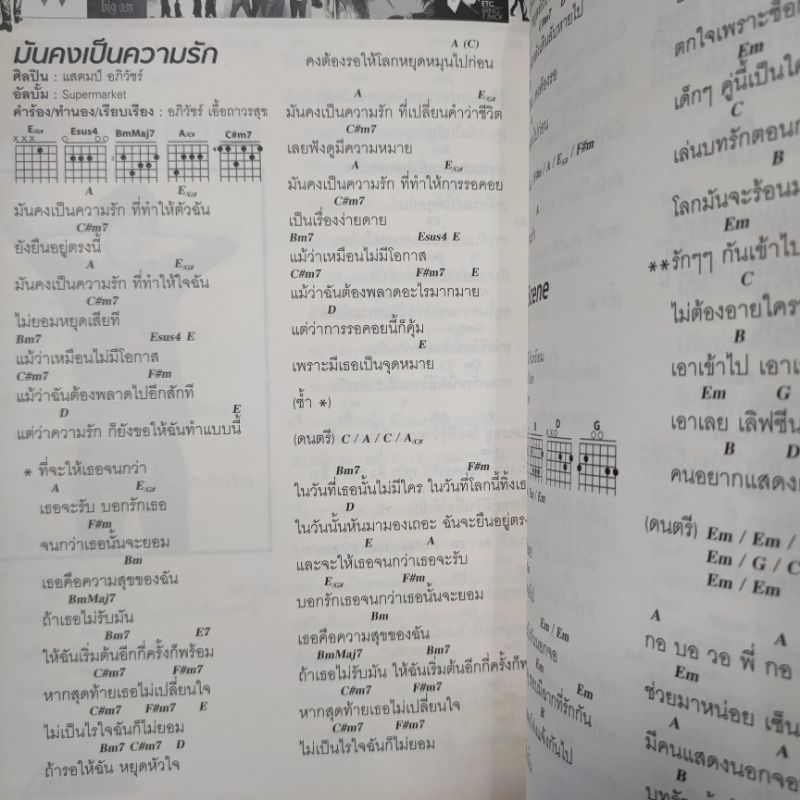 big ass
ETC.
BRING IT BACK
มันคงเป็นความรัก
ศิลปิน : แสตมป์ อภิวัชร์
อัลบั้ม : Supermarket
คำร้อง/ทำนอง/เรียบเรียง : อภิวัชร์ เอื้อถาวรสุข
E/G# Esus4 BmMaj7 A/C# C#m7
A E/G#
มันคงเป็นความรัก ที่ทำให้ตัวฉัน
C#m7
ยังยืนอยู่ตรงนี้
A E/G#
มันคงเป็นความรัก ที่ทำให้ใจฉัน
C#m7
ไม่ยอมหยุดเสียที
Bm7 Esus4 E
แม้ว่าเหมือนไม่มีโอกาส
C#m7 F#m
แม้ว่าฉันต้องพลาดไปอีกสักที
D E
แต่ว่าความรัก ก็ยังขอให้ฉันทำแบบนี้
* ที่จะให้เธอจนกว่า
A E/G#
เธอจะรับ บอกรักเธอ
F#m
จนกว่าเธอนั้นจะยอม
Bm
เธอคือความสุขของฉัน
BmMaj7
ถ้าเธอไม่รับมัน
Bm7 E7
ให้ฉันเริ่มต้นอีกกี่ครั้งก็พร้อม
C#m7 F#m7
หากสุดท้ายเธอไม่เปลี่ยนใจ
C#m7 F#m7 E
ไม่เป็นไรใจฉันก็ไม่ยอม
Bm7 C#m7 D
ถ้ารอให้ฉัน หยุดหัวใจ
A (C)
คงต้องรอให้โลกหยุดหมุนไปก่อน
A E/G#
มันคงเป็นความรัก ที่เปลี่ยนคำว่าชีวิต
C#m7
เลยฟังดูมีความหมาย
A E/G#
มันคงเป็นความรัก ที่ทำให้การรอคอย
C#m7
เป็นเรื่องง่ายดาย
Bm7 Esus4 E
แม้ว่าเหมือนไม่มีโอกาส
C#m7 F#m7 E
แม้ว่าฉันต้องพลาดอะไรมากมาย
D
แต่ว่าการรอคอยนี้ก็คุ้ม
E
เพราะมีเธอเป็นจุดหมาย
(ซ้ำ *)
(ดนตรี) C / A / C / A/C#
Bm7 F#m
ในวันที่เธอนั้นไม่มีใคร ในวันที่โลกนี้ทิ้งเธ
D
ในวันนั้นหันมามองเถอะ ฉันจะยืนอยู่ตรง
E A
และจะให้เธอจนกว่าเธอจะรับ
E/G# F#m
บอกรักเธอจนกว่าเธอนั้นจะยอม
Bm
เธอคือความสุขของฉัน
BmMaj7 Bm7
ถ้าเธอไม่รับมัน ให้ฉันเริ่มต้นอีกกี่ครั้งก็พ
C#m7 F#m7
หากสุดท้ายเธอไม่เปลี่ยนใจ
C#m7 F#m7
ไม่เป็นไรใจฉันก็ไม่ยอม
C#m7
F#m / A / E/G# / F#m
A
cene
D G
Em / Em
Em
Em
B
ตกใจเพราะชื่อ
Em
เด็กๆ คู่นี้เป็นใค
C
เล่นบทรักตอนก
B
โลกมันจะร้อนม
Em
**รักๆๆ กันเข้าไป
C
ไม่ต้องอายใคร
B
เอาเข้าไป เอาเ
Em G
เอาเลย เลิฟซีน
B D
คนอยากแสดง
(ดนตรี) Em / Em /
Em / G / C
Em / Em
A A
กอ บอ วอ พี่ กอ
Em
ช่วยมาหน่อย เซ็น
A A
มีคนแสดงนอกจอ
B